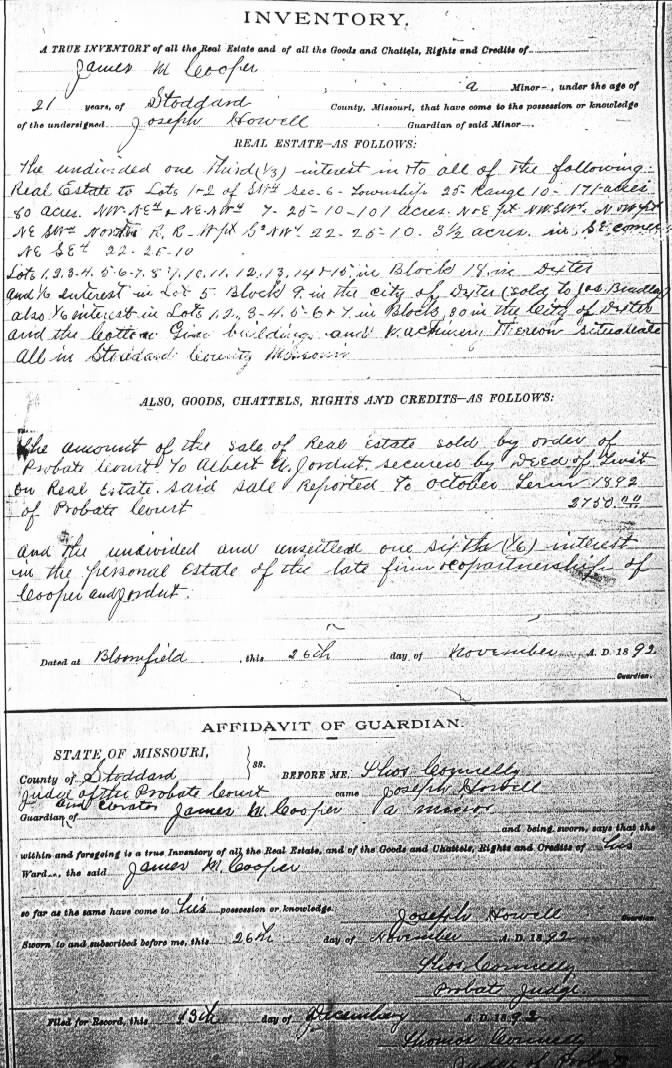 INVENTORY.
A TRUE INVENTORY of all the Real Estate and of all the Goods and Chattels, Rights and Credits of
James M Cooper a Minor , under the age of
21 years, of Stoddard County, Missouri, that have come to the possession or knowledge
of the undersigned Joseph Howell Guardian of said Minor .
REAL ESTATE—AS FOLLOWS:
The undivided one third (1/3) interest in & to all of the following
Real Estate to Lots 1 & 2 of SW¼ Sec. 6 - Township 25 Range 10 - 171 acres
80 acres. NW. NE¼ & NE. NW¼ 7 - 25 - 10 - 101 acres. N & E pt NW. SW¼. N. W pt
NE SW¼ North R. R. W pt NW¼ 22 - 25 - 10. 3½ acres. in S.E. corner
NE SE¼ 22 - 25 - 10
Lots 1, 2, 3, 4, 5, 6, 7, 8, 9, 10, 11, 12, 13, 14 & 15, in Block 18 in Dexter
and 1/6 Interest in Lot 5 Block 9. in the city of Dexter (sold to Jos. Bradley
also 1/6 interest in Lots 1, 2, 3, 4, 5, 6 & 7, in Block 30 in the City of Dexter
and the Cotton Gin buildings and Machinery Thereon situateate
all in Stoddard County Missouri
ALSO, GOODS, CHATTELS, RIGHTS AND CREDITS—AS FOLLOWS:
The amount of the sale of Real Estate sold by order of
Probate Court To Albert Jordut, secured by Deed of Trust
on Real Estate. said sale Reported To October Term 1892
of Probate Court 2750.00
and the undivided and unsettled one sixth (1/6) interest
in the personal Estate of the late firm copartnership of
Cooper and Jordut.
Dated at Bloomfield , this 26th day of November A. D. 1892.
Guardian.
AFFIDAVIT OF GUARDIAN.
STATE OF MISSOURI,
County of Stoddard ss. BEFORE ME, Thos Connelly
Judge of the Probate Court came Joseph Howell
and curator
Guardian of James M. Cooper a minor
and being sworn, says that the
within and foregoing is a true Inventory of all the Real Estate, and of the Goods and Chattels, Rights and Credits of his
Ward , the said James M. Cooper
so far as the same have come to his possession or knowledge. Joseph Howell Guardian
Sworn to and subscribed before me, this 26th day of November A. D. 1892
Thos Connelly
Probate Judge
Filed for Record, this 13th day of December A. D. 1892
Thomas Connelly
Judge of Probate